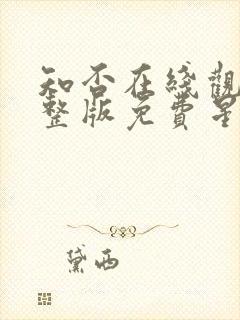 知否在綫觀
整版免費星
黛西